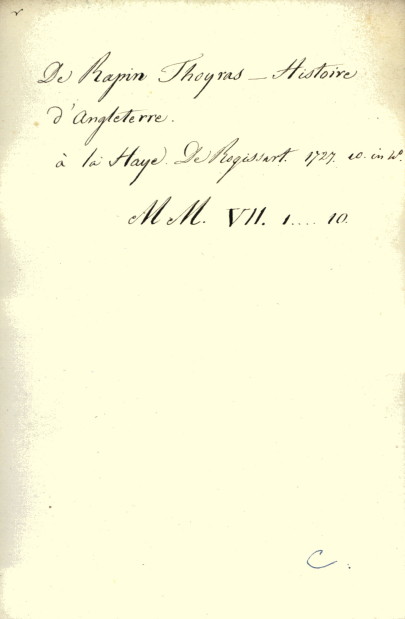 De Rapin Thoyras — Histoire
d'Angleterre.
à la Haye. De Rogissart. 1727. 10. in 4º.
M M. VII. 1.... 10.
C.